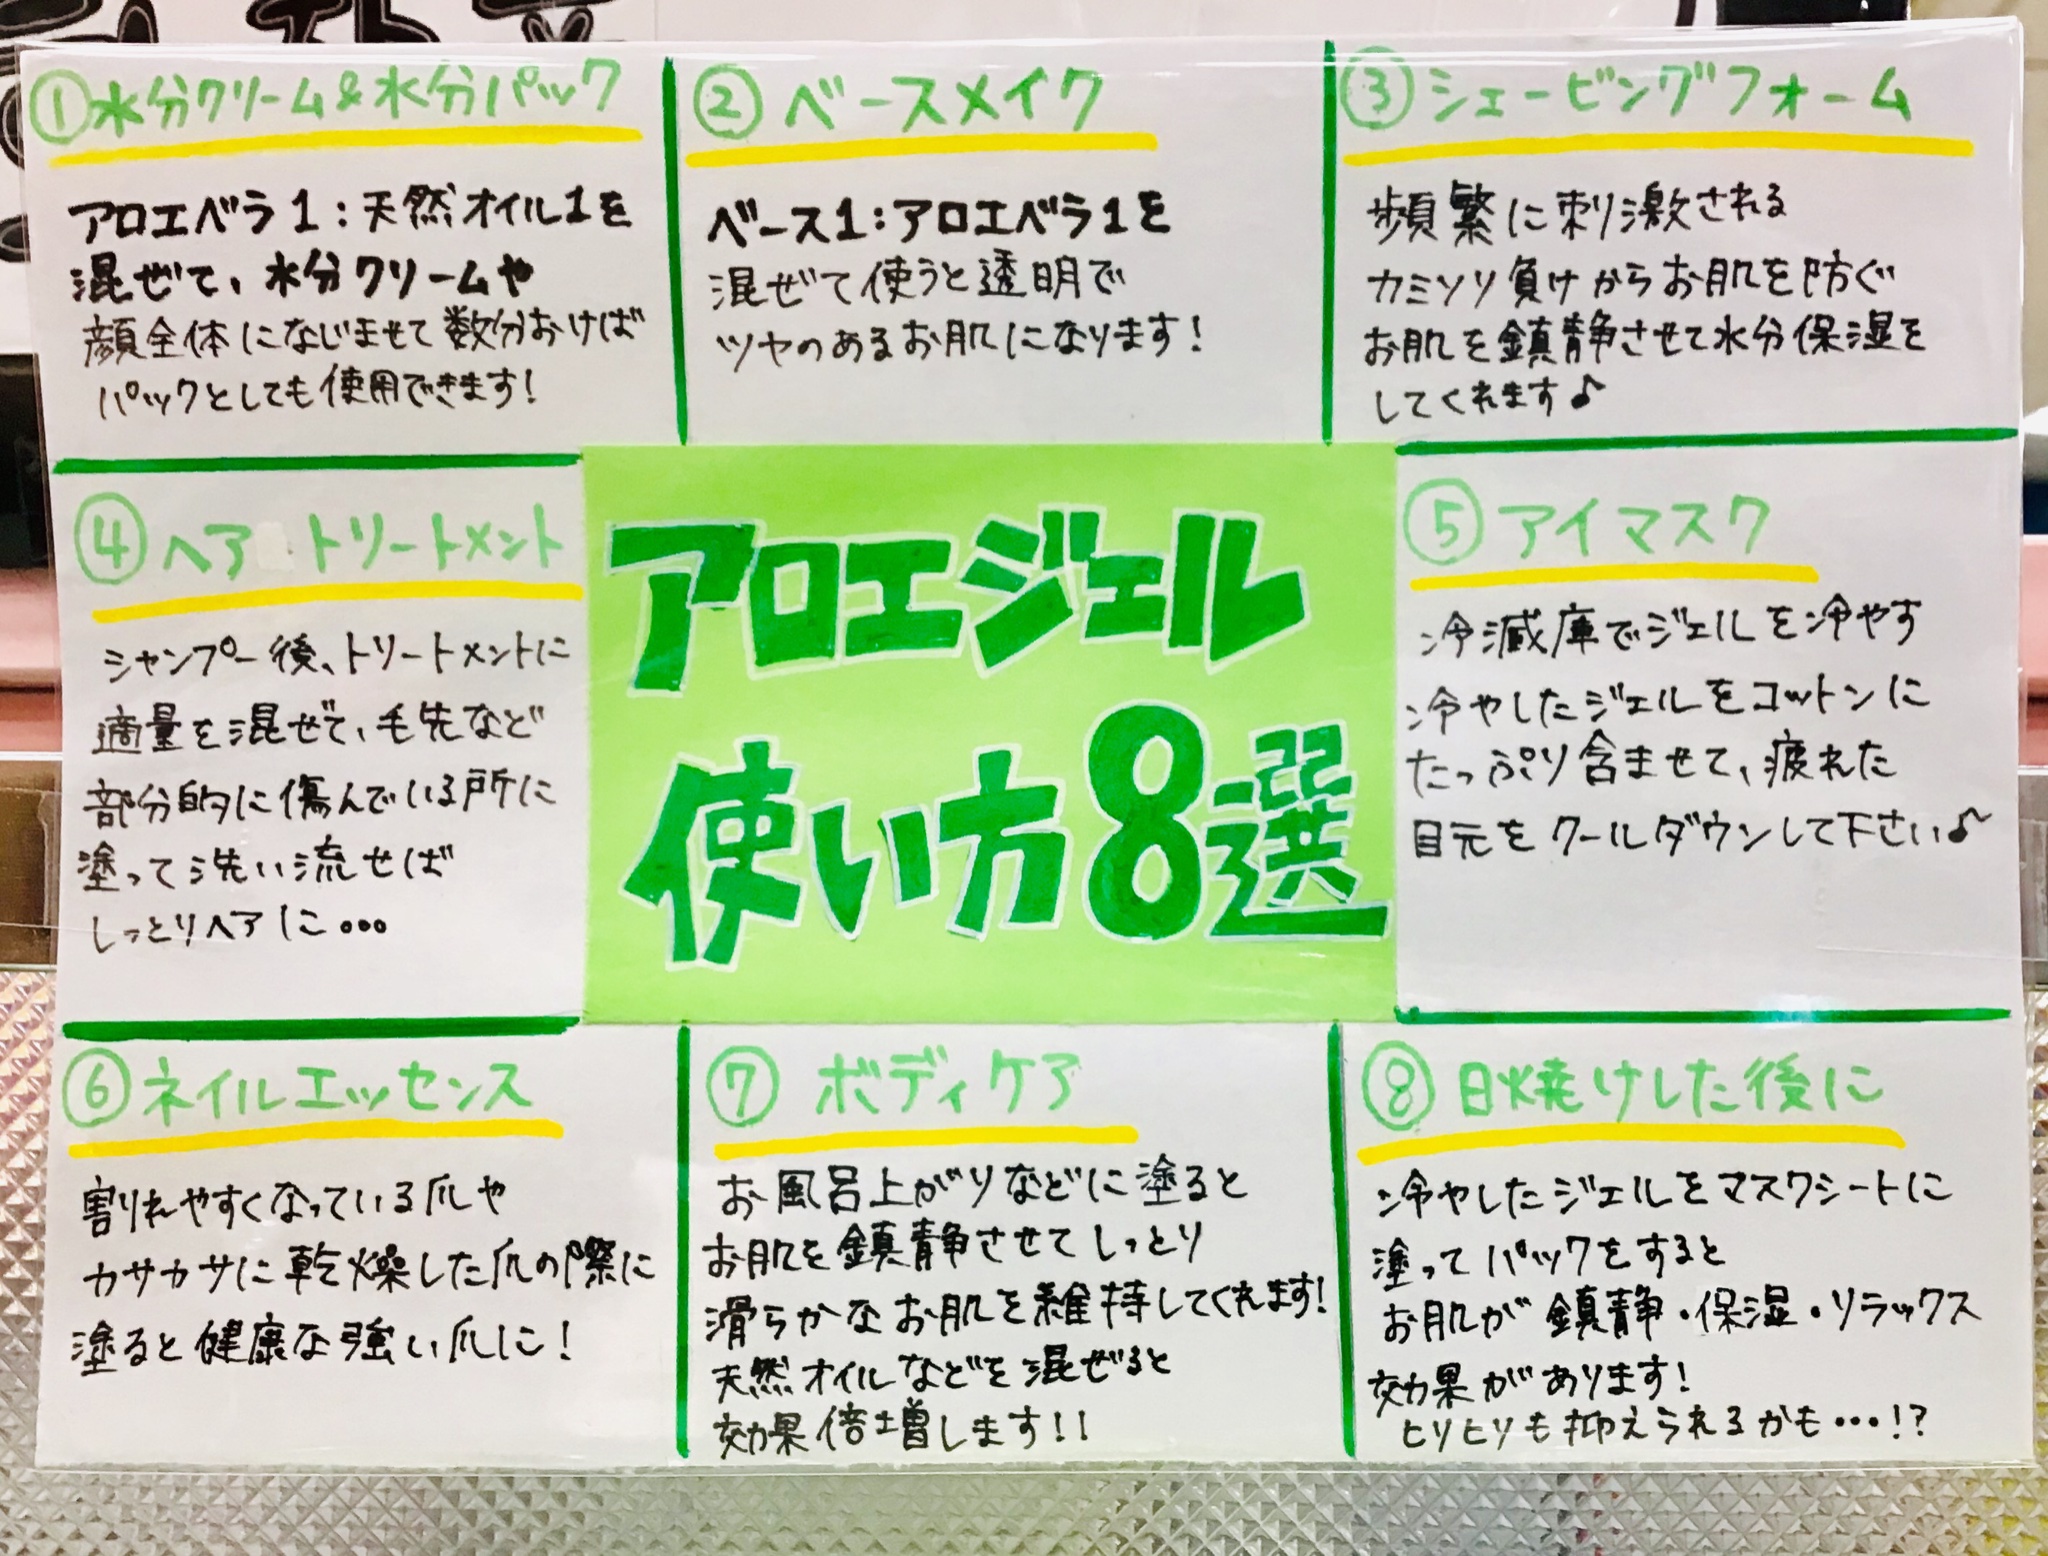 ①水分クリーム&水分パック
アロエベラ1:天然オイル1を
混ぜて、水分クリームや
顔全体になじませて数分おけば
パックとしても使用できます!
②ベースメイク
ベース1:アロエベラ1を
混ぜて使うと透明で
ツヤのあるお肌になります!
③シェービングフォーム
頻繁に刺激される
カミソリ負けからお肌を防ぐ
お肌を鎮静させて水分保湿を
してくれます♪
④ヘア トリートメント
シャンプー後、トリートメントに
適量を混ぜて、毛先など
部分的に傷んでいる所に
塗って洗い流せば
しっとりヘアに…
アロエジェル
使い方8選
⑤アイマスク
冷蔵庫でジェルを冷やす
冷やしたジェルをコットンに
たっぷり含ませて、疲れた
目元をクールダウンして下さい♪
⑥ネイルエッセンス
割れやすくなっている爪や
カサカサに乾燥した爪の際に
塗ると健康な強い爪に!
⑦ボディケア
お風呂上がりなどに塗ると
お肌を鎮静させてしっとり
滑らかなお肌を維持してくれます!
天然オイルなどを混ぜると
効果倍増します!!
⑧日焼けした後に
冷やしたジェルをマスクシートに
塗ってパックをすると
お肌が鎮静・保湿・リラックス
効果があります!
ヒリヒリも抑えられるかも…!?